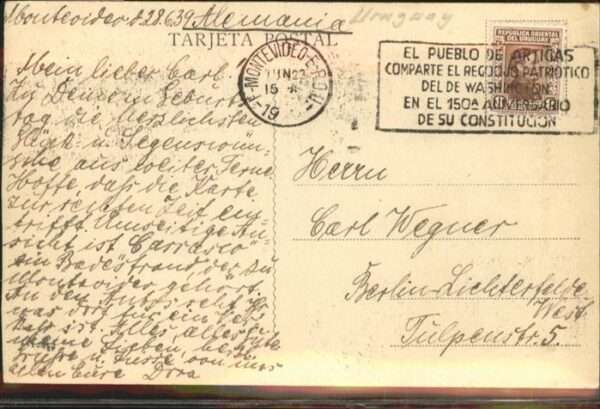 Montevideo d 28.6.39 Alemania
Uruguay
TARJETA POSTAL
REPUBLICA ORIENTAL
DEL URUGUAY
MONTEVIDEO
JUN 28
15
19
EL PUEBLO DE ARTIGAS
COMPARTE EL REGOCIJO PATRIOTICO
DEL DE WASHINGTON
EN EL 150º ANIVERSARIO
DE SU CONSTITUCION
Mein lieber Carl.
Zu Deinem Geburts-
tag die herzlichsten
Glück- u. Segenswün-
sche aus weiter Ferne
Hoffe, daß die Karte
zur rechten Zeit ein-
trifft. Umseitige An-
sicht ist "Carrasco"
ein Badestrand der zu
Montevideo gehört.
An den Autos seht Ihr
was dort für ein
ist. Alles, alles Gute
meine Lieben, herzliche
Grüße u. Küsse von uns
allen Eure Dora
Herrn
Carl Wegner
Berlin-Lichterfelde-
West.
Tulpenstr. 5.